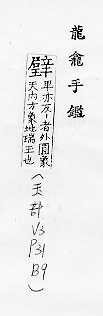 龍龕手鑑
璧 平亦反丨者外圓象
天内方象地瑞玉也
(玉部 V3 P31 B9)